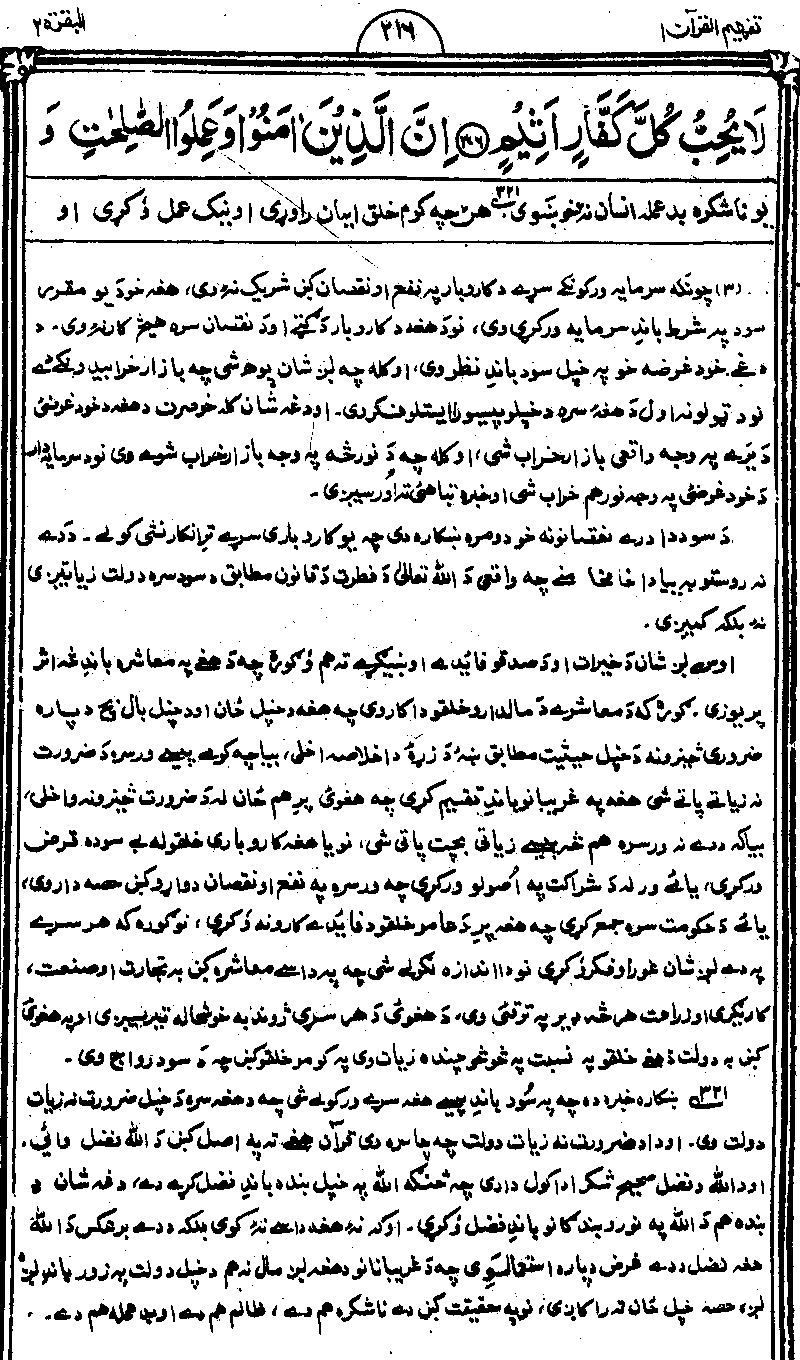 تفہیم القرآن ۱
۲۱۶
البقرة ۲
لَا يُحِبُّ كُلَّ كَفَّارٍ اَثِيْمٍ ﴿۲۷۶﴾ اِنَّ الَّذِيْنَ اٰمَنُوْا وَعَمِلُوا الصّٰلِحٰتِ وَ
یو ناشکره بد عمله انسان نۀ خوښوی ۳۲۱ هن چه کوم خلق ایمان راوړی او نیک عمل وُکړی او
(۳) چونکه سرمایه ورکونکے سړے د کاروبار په نفع او نقصان کښ شریک نۀ وی، هغه خود یو مقرر
سود په شرط باندِ سرمایه ورکړی وی، نو د هغه د کاروبار د ګټے او د نقصان سره هیڅ کار نۀ وی. د
هغۀ خود غرضه خو په خپل سود باندِ نظر وی، او کله چه لږ شان پوهه شی چه بازار خرابیدو
نود ټولو نه اول د هغۀ سره د خپلو پیسو رااېستلو فکر وی. او دغه شان کله خو صرت د هغه د خود غرضئ
دَ یَرے په وجه واقعی بازار خراب شی، او کله چه دَ نورڅه په وجه بازار خراب شوے وی نود سرمایه دار
دَ خود غرضئ په وجه نور هم خراب شی او خبره تباهئ ته اُورسیږی.
دَ سود دا درے نقصانونه خو دومره ښکاره دی چه یو کاروباری سړے ترِ انکار نشی کولے. دَ دے
نه روستو به بیا دا خامخا منے چه واقعی دَ الله تعالیٰ دَ فطرت دَ قانون مطابق د سود سره دولت زیاتیږی
نۀ بلکه کمیږی.
اوس لږ شان دَ خیرات او دَ صدقو فائیدے او نیګړے ته هم وُ ګوره چه دَ هغے په معاشره باندِ څه اثر
پریوزی. ګوره که دَ معاشرے دَ مالدارو خلقو دا کار وی چه هغه د خپل ځان او د خپل بال بچ د پاره
ضروری څیزونه دَ خپل حیثیت مطابق ښۀ دَ زړۀ د اخلاصه اخلی، بیا چه کومے پیسے ورسره دَ ضرورت
نه زیاتے پاتے شی هغه په غریبانو باندِ تقسیم کړی چه هغوئ پرِ هم ځان له دَ ضرورت څیزونه واخلی،
بیا که ددے نه ورسره هم څه پیسے زیاتی بچت پاتی شی، نو یا هغه کاروباری خلقو له بے سوده قرض
ورکړی، یائے ورله دَ شراکت په اُصولو ورکړی چه ورسره په نفع او نقصان دواړو کښ حصه دار وی،
یائے دَ حکومت سره جمع کړی چه هغه پرِ دَ عامو خلقو د فائیدے کارونه وُکړی، نو ګوره که هر سړے
په دے لږ شان غور او فکر وُکړی نو دا اندازه لګولے شی چه په داسے معاشره کښ به تجارت او صنعت،
کاریګری او زراعت هر څه ډیر په ترقئ وی، دَ هغوئ دَ هر سړی ژوند به خوشحاله تیریږی او په هغوئ
کښ به دولت دَ هغے خلقو په نسبت په څو څو چنده زیات وی په کومو خلقو کښ چه دَ سود رواج وی.
۳۲۱ ښکاره خبره ده چه په سُود باندِ پیسے هغه سړے ورکولے شی چه د هغه سره دَ خپل ضرورت نه زیات
دولت وی. او دا د ضرورت نه زیات دولت چه چا سره وی قرآن هغے ته په اصل کښ دَ الله فضل وائی.
او د الله د فضل صحیح شکر ادا کول دا دی چه څنګه الله په خپل بنده باندِ فضل کړے دے، دغه شان دِ
بنده هم دَ الله په نورو بندګانو باندِ فضل وُکړی. او که نۀ هغه داسے نۀ کوی بلکه ددے برعکس دَ الله
هغه فضل ددے غرض دپاره استعمالوی چه دَ غریبانانو د هغه لږ مال نه هم د خپل دولت په زور باندِ لږه
لږه حصه خپل ځان ته راکاږی، نو په حقیقت کښ دے ناشکره هم دے، ظالم هم دے او بد عمله هم دے.